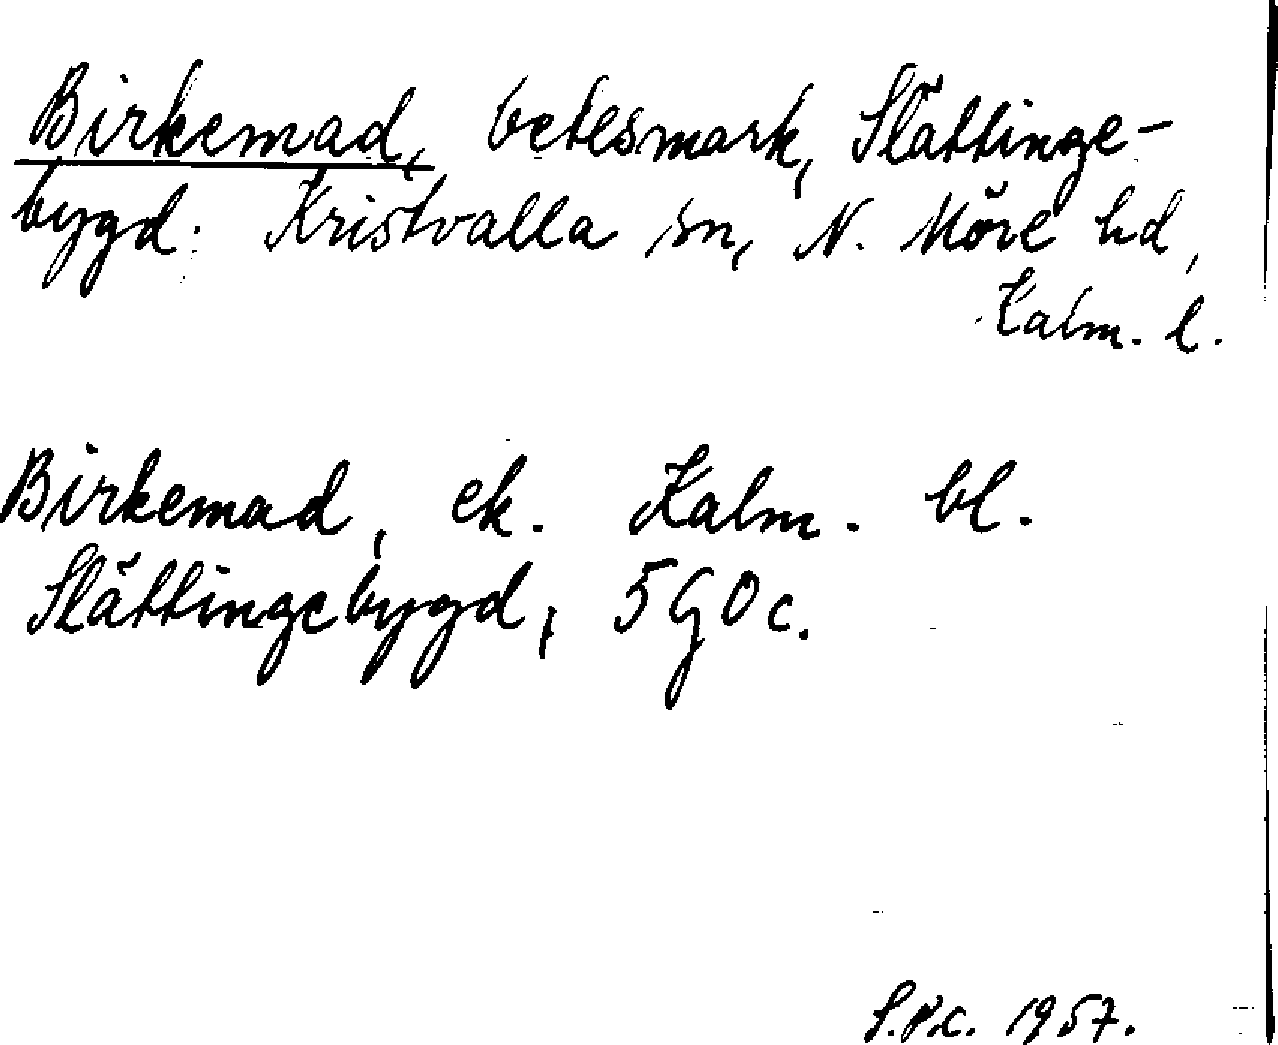 Birkemad, betesmark, Slättinge-
bygd. Kristvalla sn, N. Möre hd,
Kalm. l.
Birkemad, ek. Kalm. bl.
Slättingebygd, 5 G 0 c.
1957.